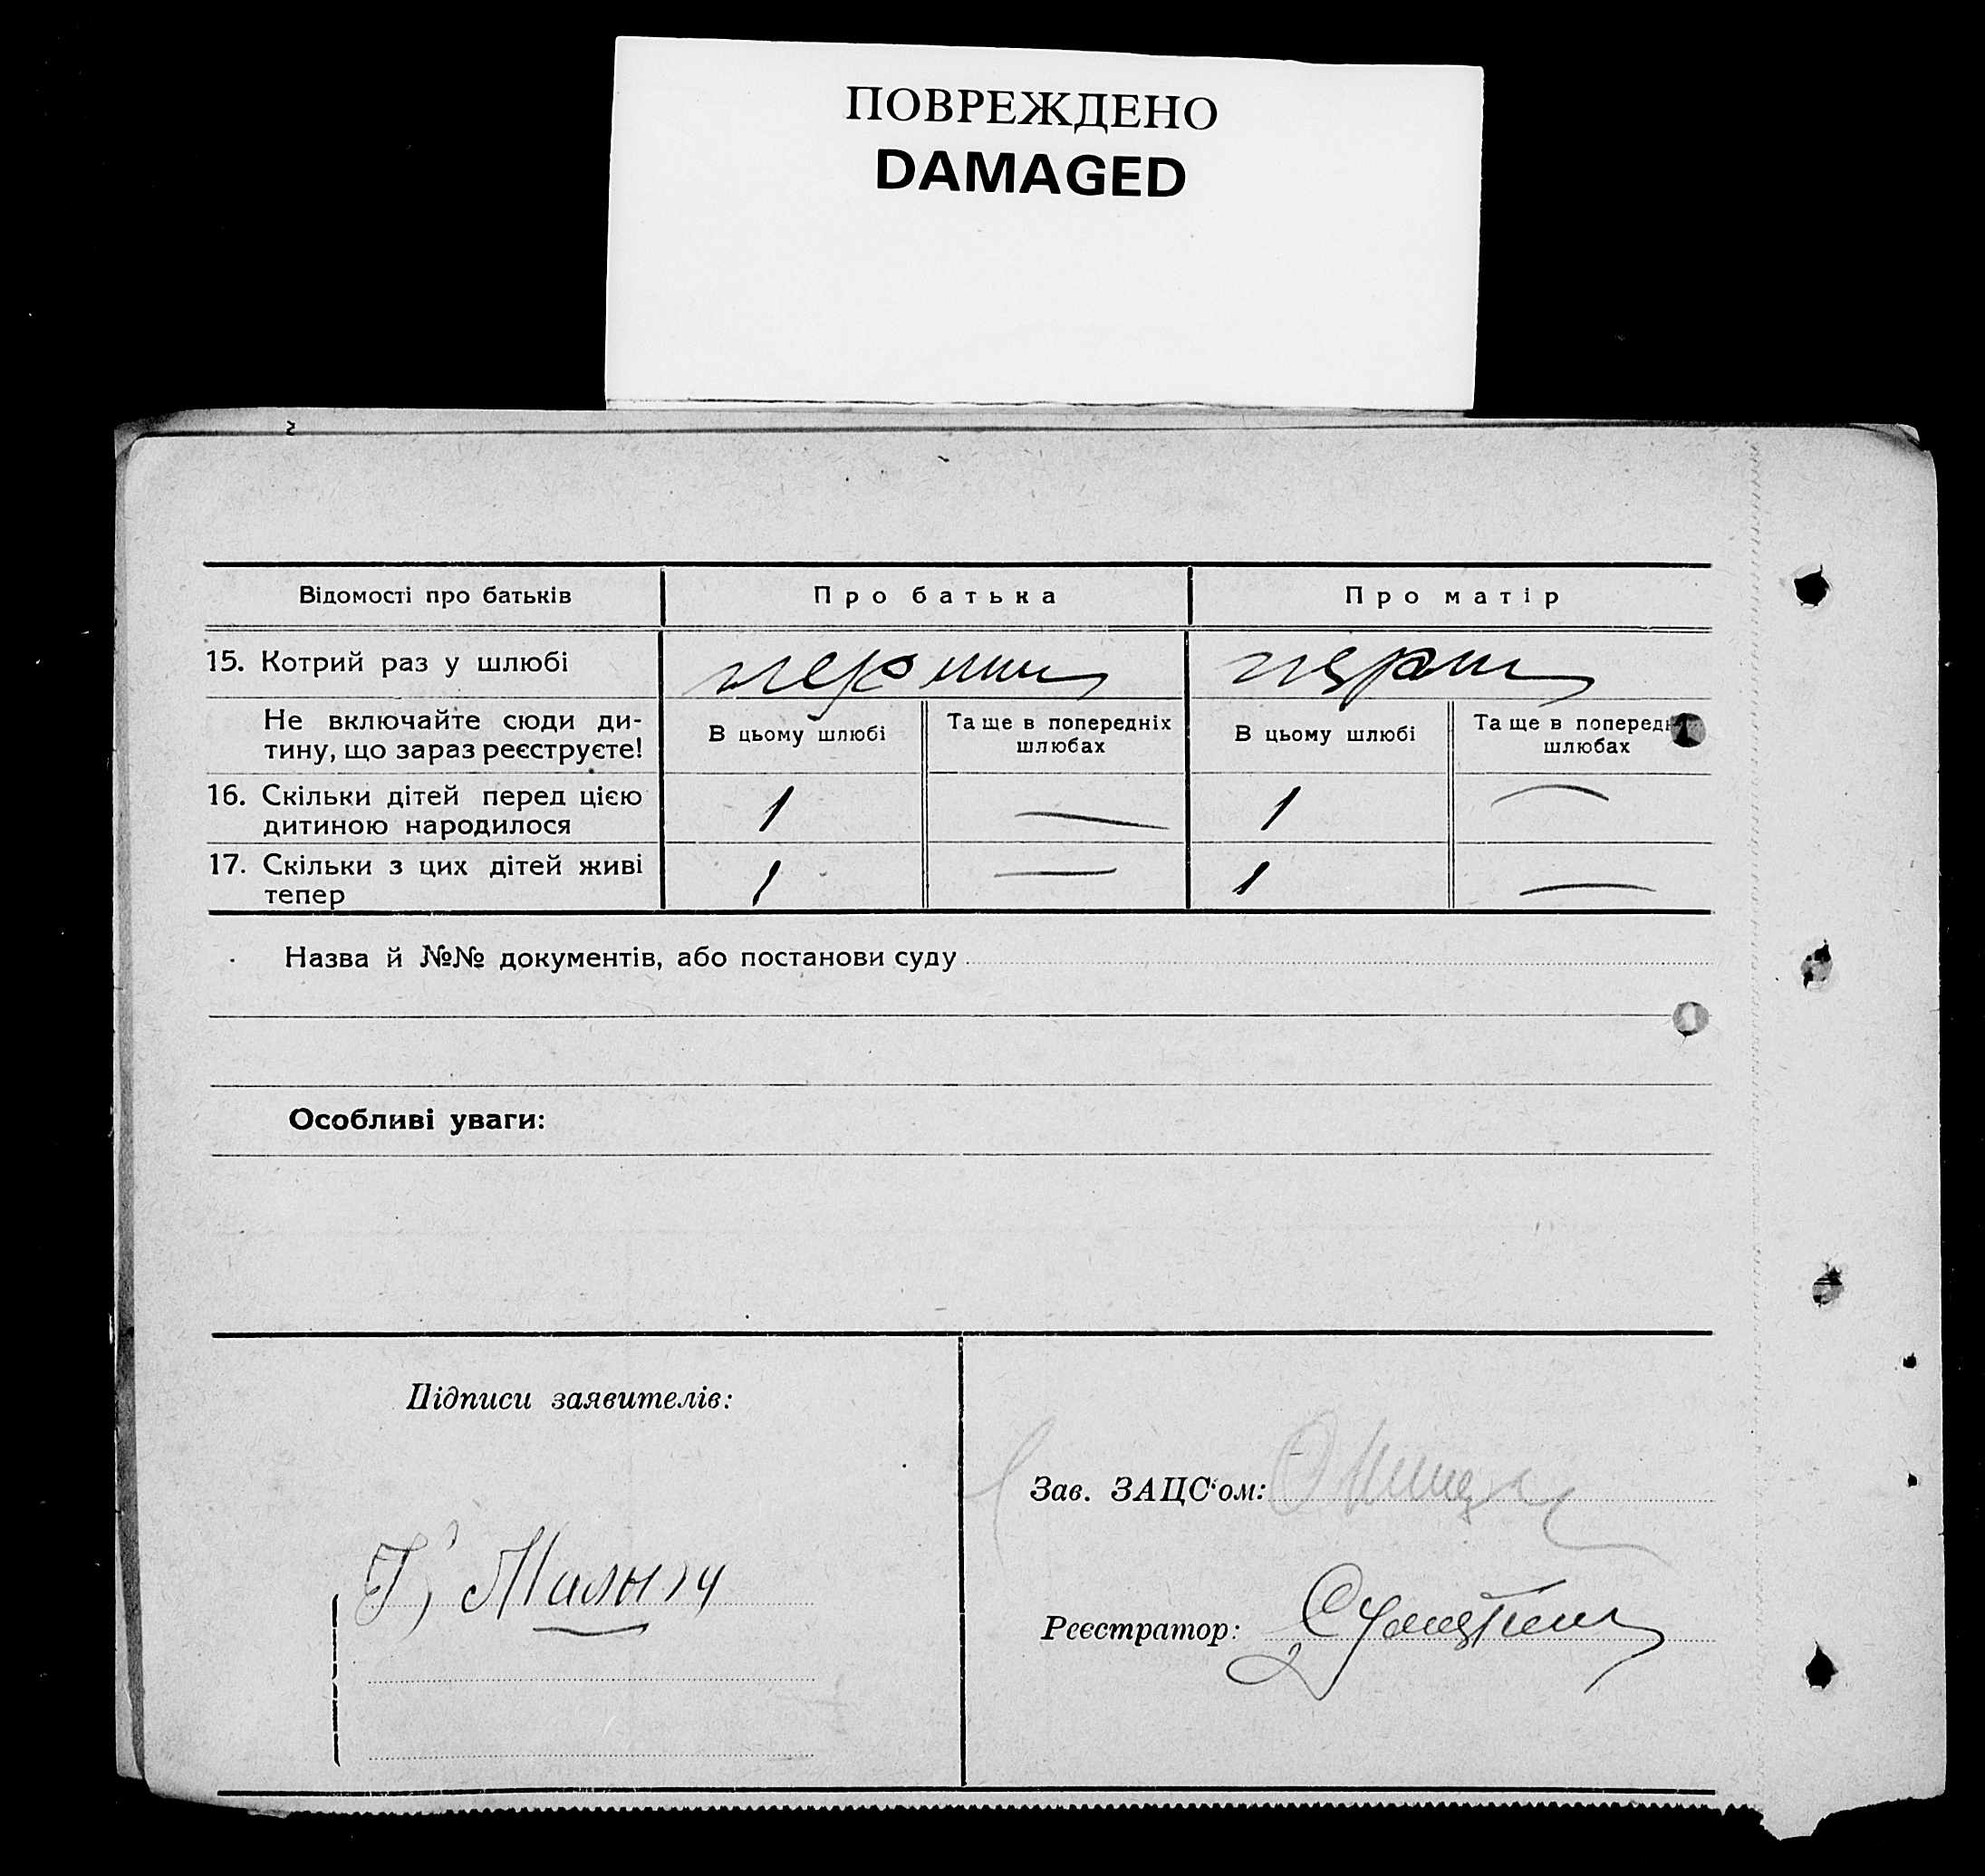 ПОВРЕЖДЕНО
DAMAGED
Відомості про батьків
Про батька
Про матір
15. Котрий раз у шлюбі
перший
перш
Не включайте сюди ди-
тину, що зараз реєструєте!
В цьому шлюбі
Та ще в попередніх
шлюбах
В цьому шлюбі
Та ще в поперед
шлюбах
16. Скільки дітей перед цією
дитиною народилося
1 — 1 —
17. Скільки з цих дітей живі
тепер
1 — 1 —
Назва й №№ документів, або постанови суду
Особливі уваги:
Підписи заявителів:
Зав. ЗАЦС‘ом:
Реєстратор: